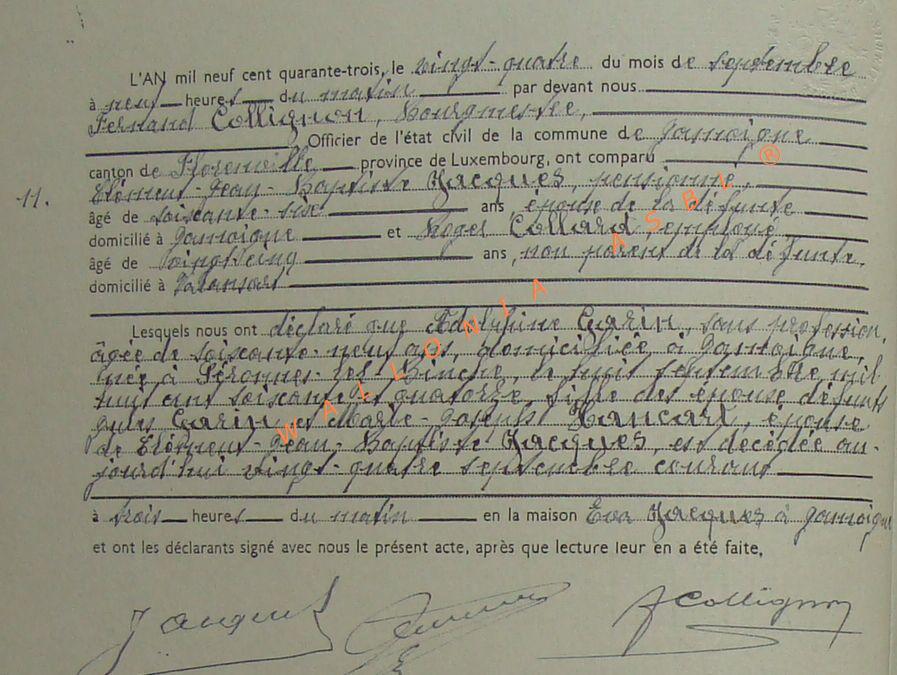 L'AN mil neuf cent quarante-trois, le vingt-quatre du mois de septembre
à neuf heures du matin par devant nous
Fernand Collignon, Bourgmestre,
Officier de l'état civil de la commune de Jamoigne
canton de Florenville province de Luxembourg, ont comparu
11. Clément-Jean-Baptiste Jacques, pensionné,
âgé de soixante-six ans époux de la défunte
domicilié à Jamoigne et Roger Collard employé
âgé de vingt cinq ans, non parent de la défunte,
domicilié à Valansart
Lesquels nous ont déclaré que Adelphine Garin, sans profession,
âgée de soixante-neuf ans, domiciliée à Jamoigne,
née à Péronnes-lez-Binche, le huit septembre mil
huit cent soixante et quatorze, fille des époux défunts
Garin et Marie-Joseph Hancart, épouse
de Clément-Jean-Baptiste Jacques, est décédée au-
jourd'hui vingt-quatre septembre courant
à trois heures du matin en la maison Jacques à Jamoigne
et ont les déclarants signé avec nous le présent acte, après que lecture leur en a été faite,
Jacques F Collignon
WALLONIA ASBL ®